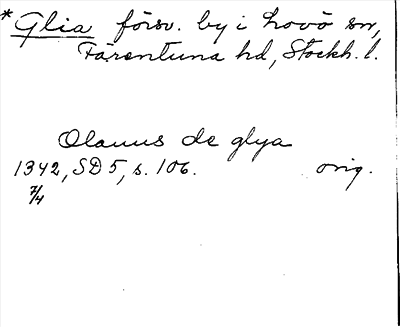 * Glia försv. by i Lovö sn,
Färentuna hd, Stockh. l.
Olauus de glya
1342, SD 5, s. 106. orig.
7/4